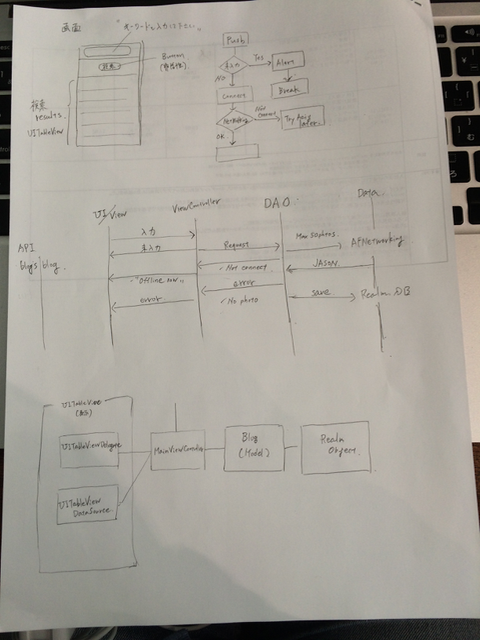 画面
"キーワードを入力して下さい"
Button
検索
検索
results
UITableView
Push
未入力
Yes
Alert
NO
Break
Connect
Not
connect
Try Again
Later
OK
UI/View
ViewController
DAO
Data
API
blogs/blog
入力
未入力
Request
Max 50photos
AFNetworking
・Not connect
JASON
"Offline now"
error
error
・No photo
save
Realm DB
UITableView
UITableViewDelegate
UITableView
DataSource
MainViewController
Blog
(Model)
Realm
Object